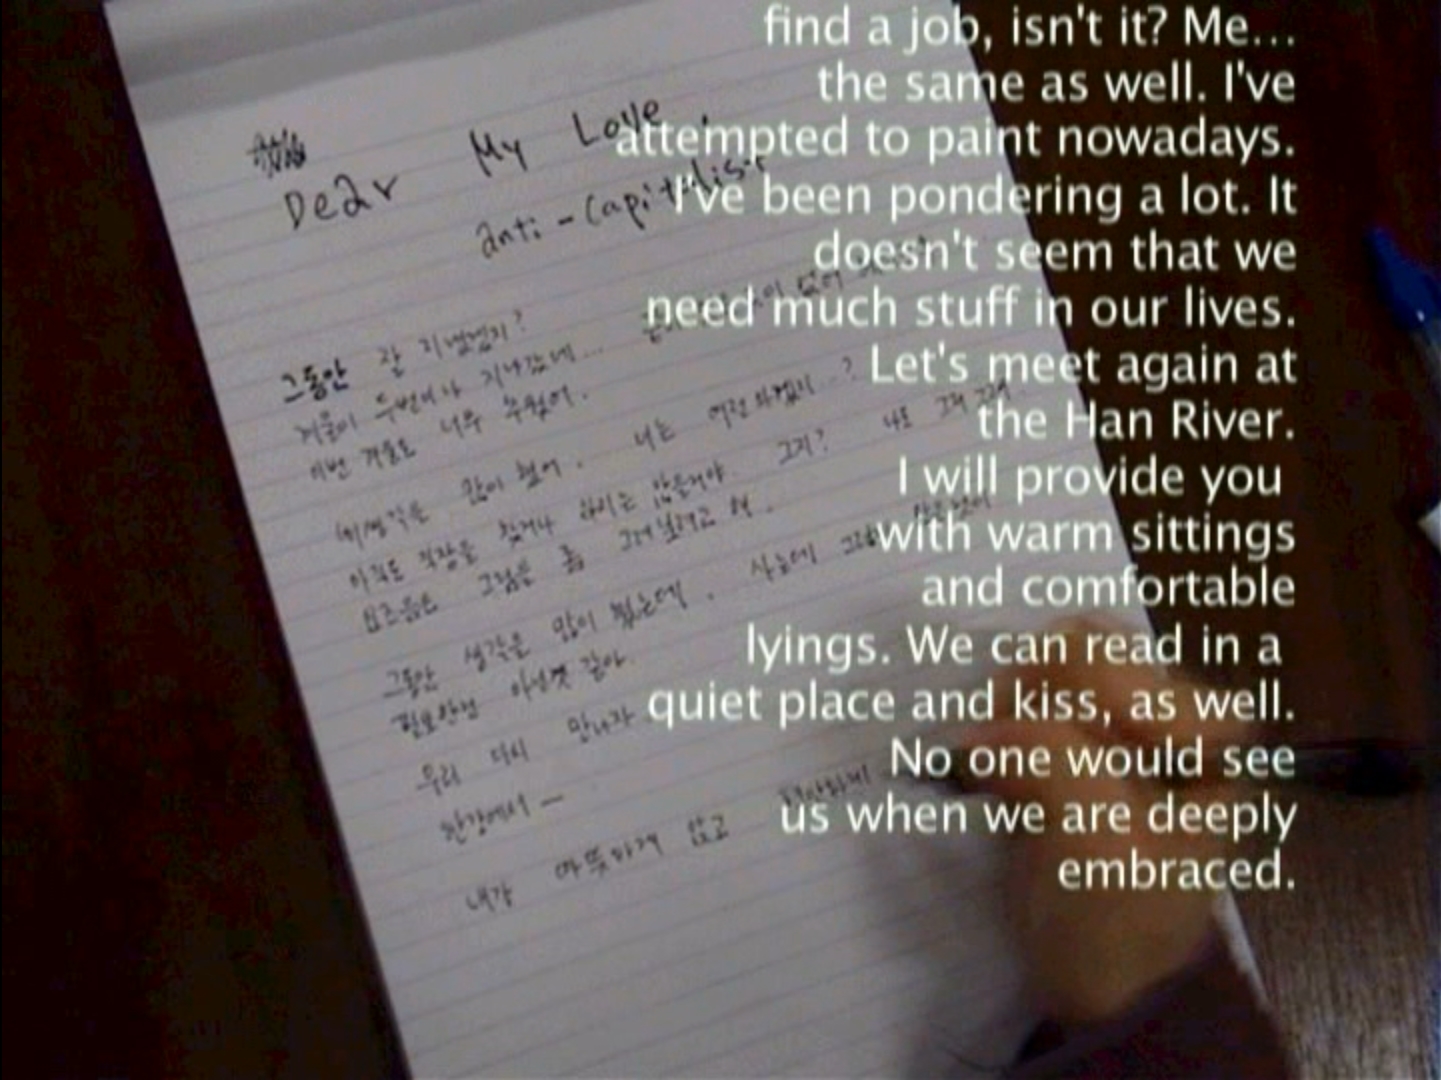 find a job, isn't it? Me...
the same as well. I've
attempted to paint nowadays.
I've been pondering a lot. It
doesn't seem that we
need much stuff in our lives.
Let's meet again at
the Han River.
I will provide you
with warm sittings
and comfortable
lyings. We can read in a
quiet place and kiss, as well.
No one would see
us when we are deeply
embraced.
Dear My Love,
anti-capitalist
그동안 잘 지냈었지?
겨울이 두번이나 지나갔네...
이번 겨울도 너무 추웠어.
네 생각을 많이 했어. 너는 여전하겠지?
아직도 직장을 찾거나 하지는 않을거야. 그지? 나도 그저 그래.
요즈음은 그림을 좀 그려보려고 해.
그동안 생각을 많이 했는데. 사는데
필요한건 아닌것 같아.
우리 다시 만나자
한강에서 —
내가 따뜻하게 앉고 편안하게